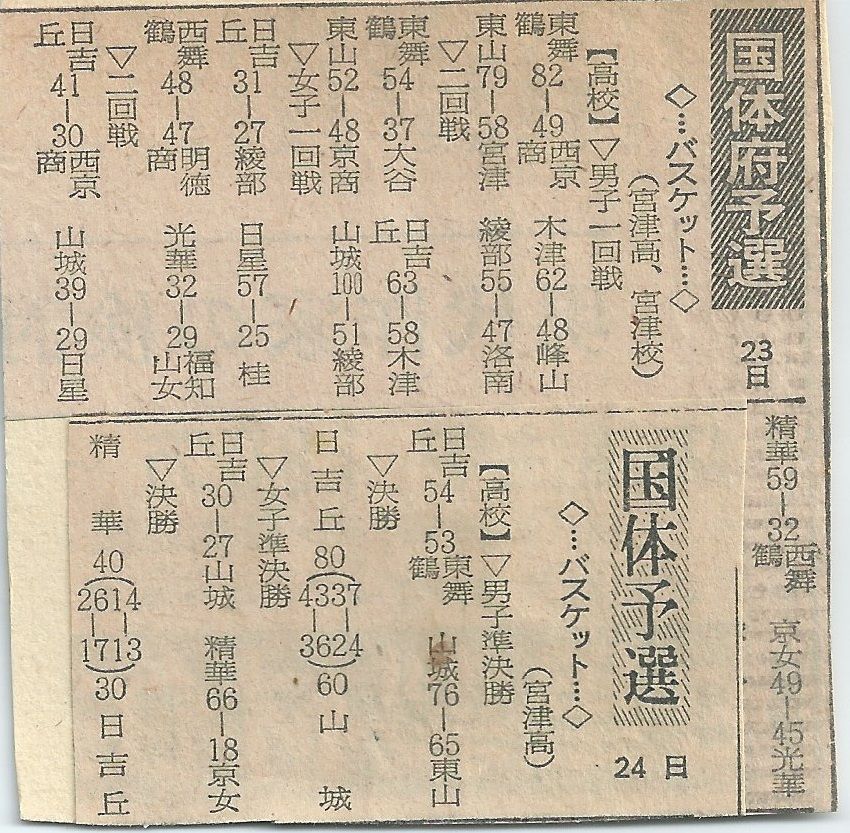 国体府予選
23日
◇…バスケット…◇
(宮津高、宮津校)
【高校】▽男子一回戦
東舞鶴82―49西京商 木津62―48峰山
東山79―58宮津 綾部55―47洛南
▽二回戦
東舞鶴54―37大谷 日吉丘63―58木津
東山52―48京商 山城100―51綾部
▽女子一回戦
日吉丘31―27綾部 日星57―25桂
西舞鶴48―47明徳商 光華32―29福知山女
▽二回戦
日吉丘41―30西京商 山城39―29日星
精華59―32西舞鶴 京女49―45光華
国体予選
24日
◇…バスケット…◇
(宮津高)
【高校】▽男子準決勝
日吉丘54―53東舞鶴 山城76―65東山
▽決勝
日吉丘80(43―36 37―24)60山城
▽女子準決勝
日吉丘30―27山城 精華66―18京女
▽決勝
精華40(26―17 14―13)30日吉丘